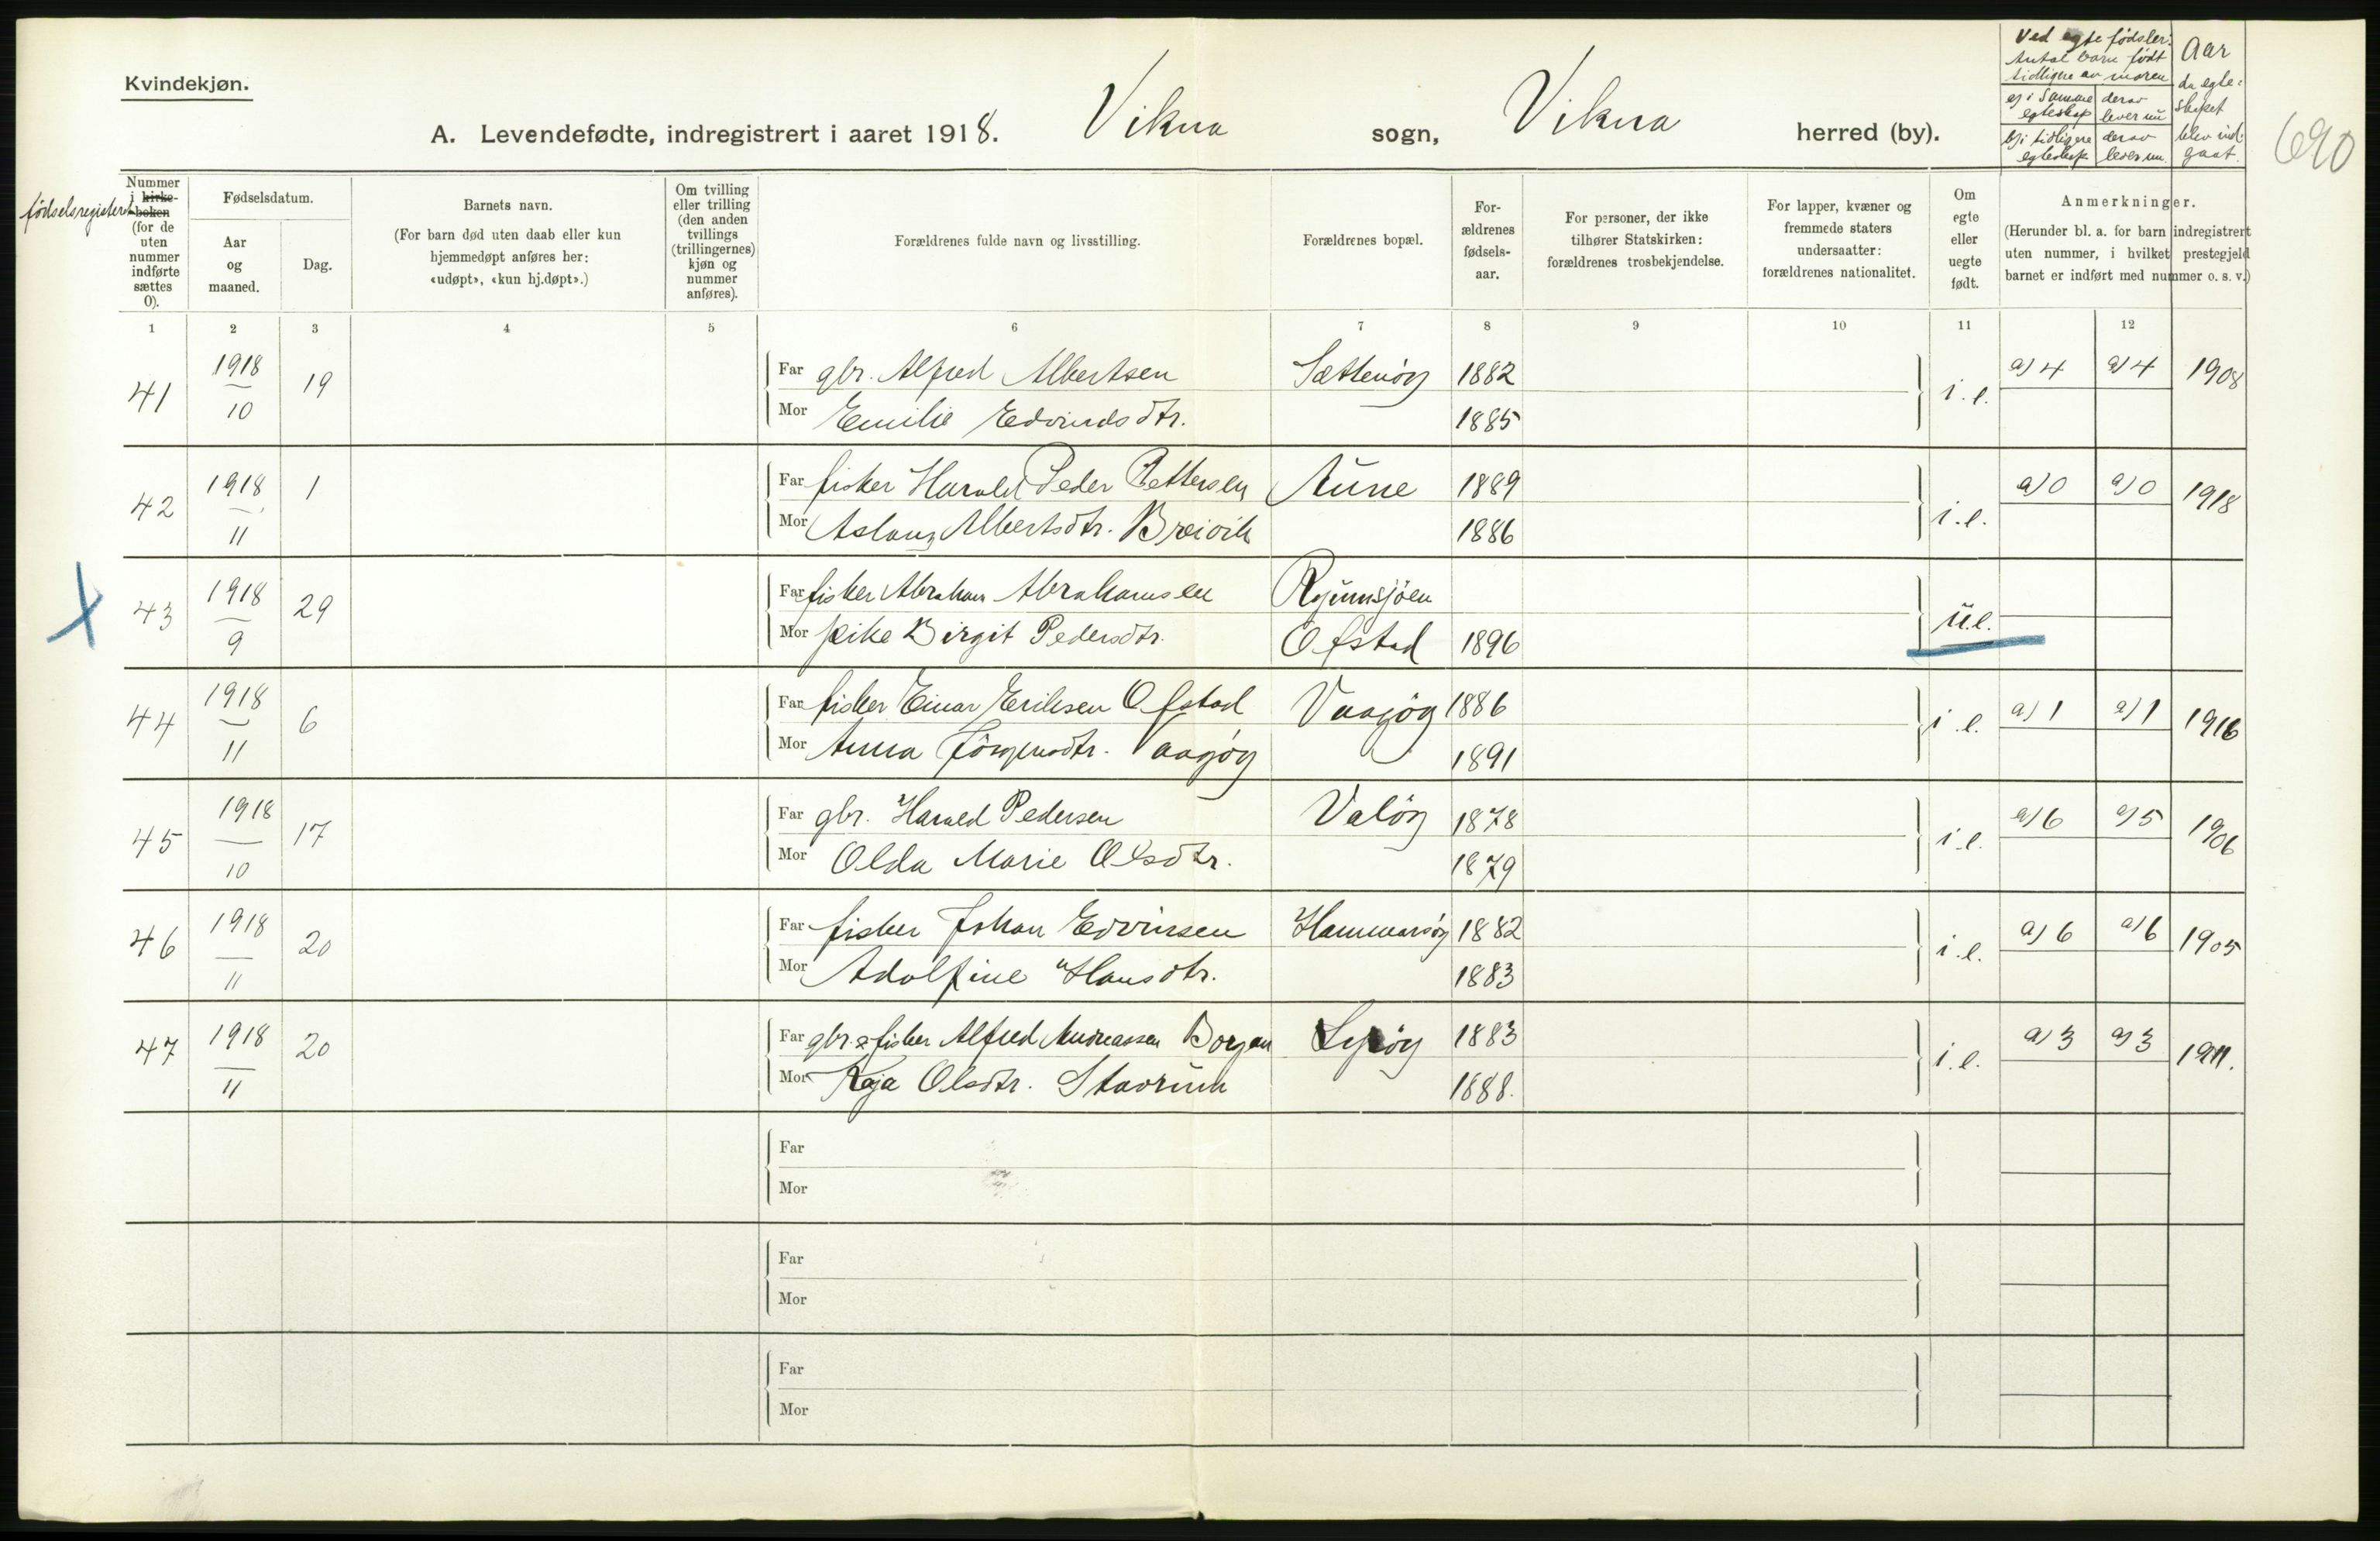 Kvindekjøn.
A. Levendefødte, indregistrert i aaret 1918. Vikna sogn, Vikna herred (by).
690
Ved egte fødsler:
Antal barn født
tidligere av moren
a) i samme egteskap
derav lever nu
b) i tidligere egteskap
derav lever nu
Aar
da egte-
skapet
blev ind-
gaat.
fødselsregisteret
Nummer i kirke-boken (for de uten nummer indførte sættes 0).
Fødselsdatum.
Aar og maaned.
Dag.
Barnets navn.
(For barn død uten daab eller kun
hjemmedøpt anføres her:
«udøpt», «kun hj.døpt».)
Om tvilling eller trilling (den anden tvillings (trillingernes) kjøn og nummer anføres).
Forældrenes fulde navn og livsstilling.
Forældrenes bopæl.
For-ældrenes fødsels-aar.
For personer, der ikke
tilhører Statskirken:
forældrenes trosbekjendelse.
For lapper, kvæner og
fremmede staters
undersaatter:
forældrenes nationalitet.
Om egte eller uegte født.
Anmerkninger.
(Herunder bl. a. for barn indregistrert
uten nummer, i hvilket prestegjeld
barnet er indført med nummer o. s. v.)
1 2 3 4 5 6 7 8 9 10 11 12
41 1918/10 19 Far gbr. Alfred Albertsen Sættenøy 1882 i.e. a) 4 a) 4 1908
Mor Emilie Edvindsdtr. 1885
42 1918/11 1 Far fisker Harald Peder Pettersen Aune 1889 i.e. a) 0 a) 0 1918
Mor Aslaug Albertsdtr. Breivik 1886
X 43 1918/9 29 Far fisker Abraham Abrahamsen u.e.
Mor pike Birgit Pedersdtr. Ofstad 1896
44 1918/11 6 Far fisker Einar Eriksen Ofstad Vaagøy 1886 i.e. a) 1 a) 1 1916
Mor Anna Jörgensdtr. Vaagøy 1891
45 1918/10 17 Far gbr. Harald Pedersen Valöy 1878 i.e. a) 6 a) 5 1906
Mor Olda Marie Olsdtr. 1879
46 1918/11 20 Far fisker Johan Edvinsen Hammarsøy 1882 i.e. a) 6 a) 6 1905
Mor Adolfine Hansdtr. 1883
47 1918/11 20 Far gbr & fisker Alfred Andreassen Borgan 1883 i.e. a) 3 a) 3 1911.
Mor Kaja Olsdtr. Stavrum 1888.
Far
Mor
Far
Mor
Far
Mor